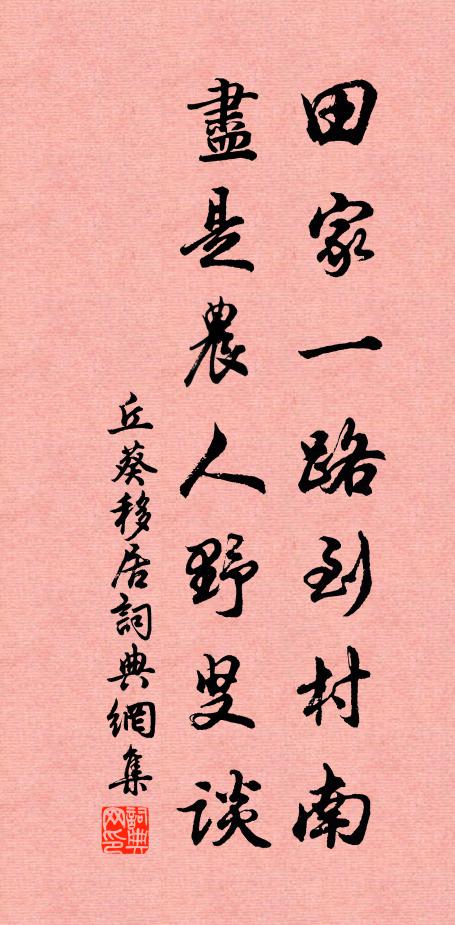 田家一路到村南
盡是農人野叟談
丘葵移居詞典網集
詞典网印